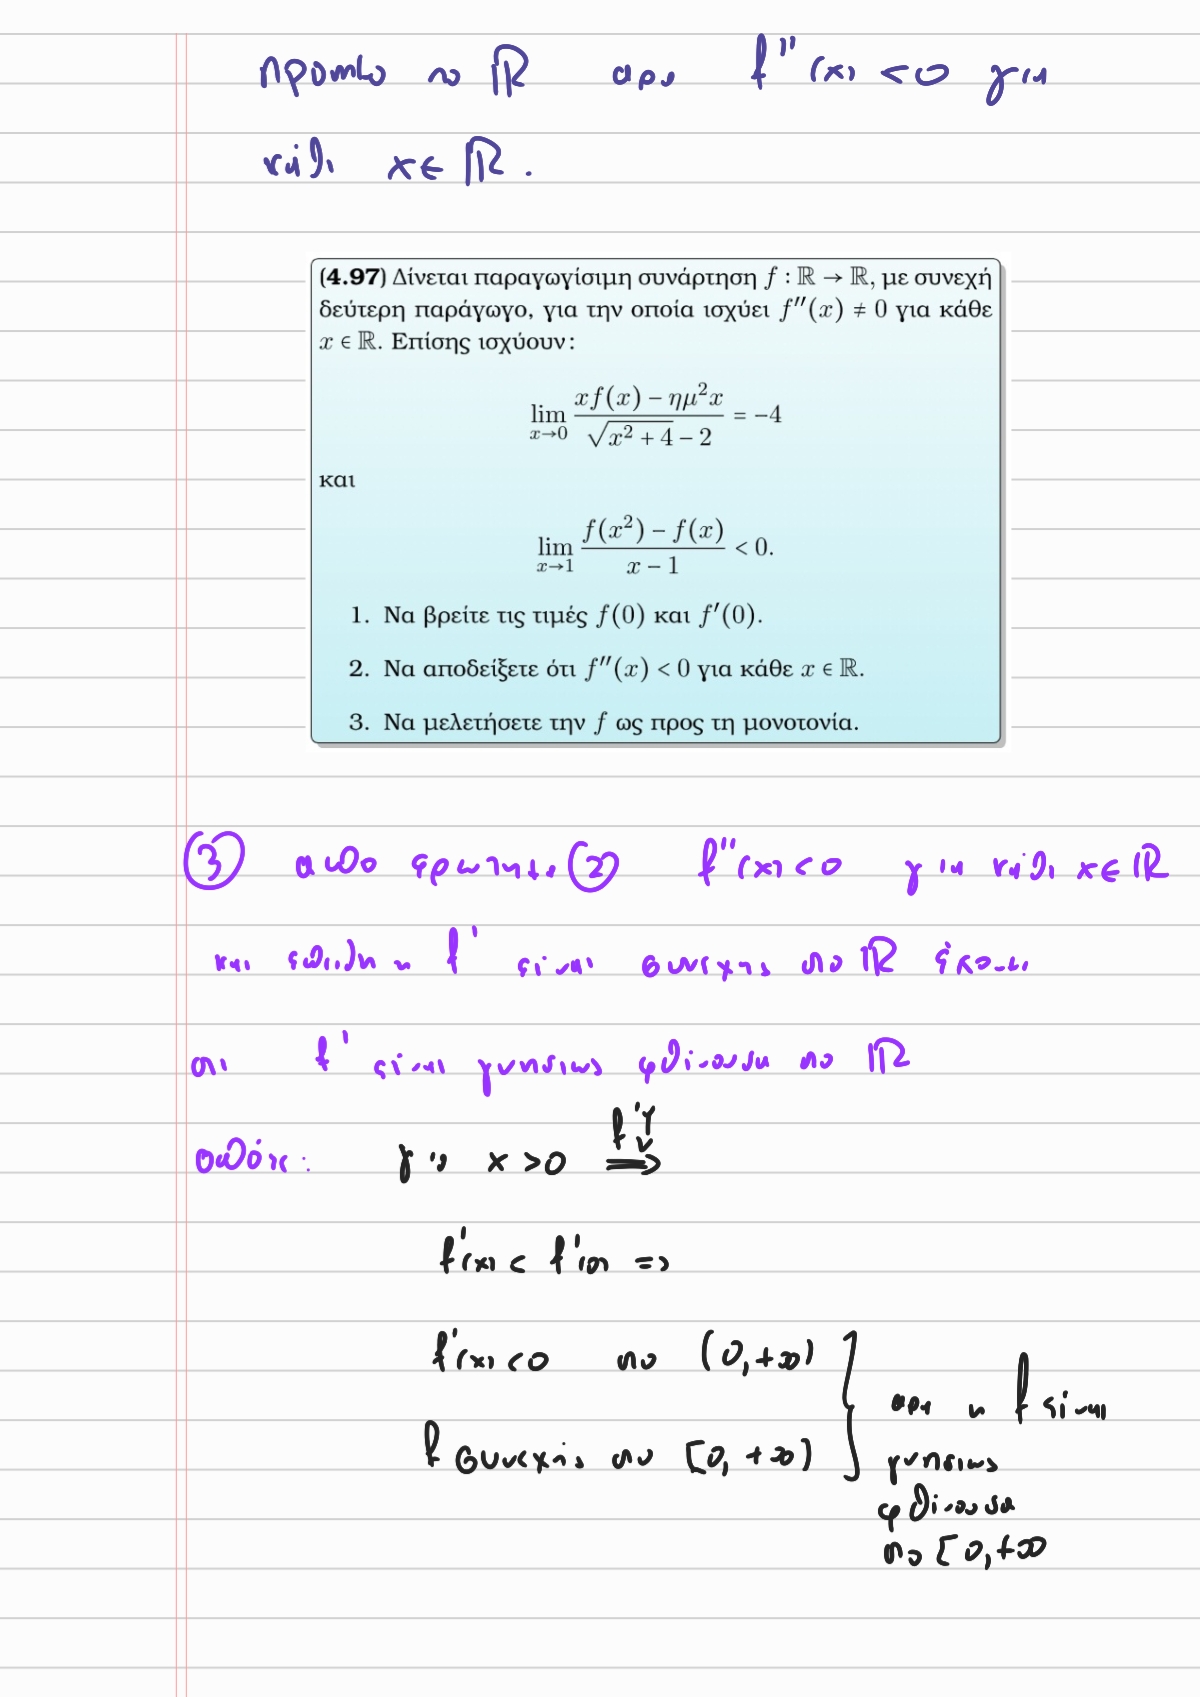 προσημο στο ℝ αρα f''(x) < 0 για
κάθε x ∈ ℝ.
(4.97) Δίνεται παραγωγίσιμη συνάρτηση f : ℝ → ℝ, με συνεχή
δεύτερη παράγωγο, για την οποία ισχύει f''(x) ≠ 0 για κάθε
x ∈ ℝ. Επίσης ισχύουν:
lim_{x→0} (xf(x) − ημ²x)/(√(x² + 4) − 2) = −4
και
lim_{x→1} (f(x²) − f(x))/(x − 1) < 0.
1. Να βρείτε τις τιμές f(0) και f'(0).
2. Να αποδείξετε ότι f''(x) < 0 για κάθε x ∈ ℝ.
3. Να μελετήσετε την f ως προς τη μονοτονία.
③ απο ερωτημα ② f''(x) < 0 για κάθε x ∈ ℝ
και επειδη η f' είναι συνεχης στο ℝ έχουμε
οτι f' είναι γνησιως φθίνουσα στο ℝ
οπότε: για x > 0 f'↓ ⟹
f'(x) < f'(0) =>
f'(x) < 0 στο (0, +∞)
f συνεχής στο [0, +∞)
αρα η f είναι
γνησιως
φθίνουσα
στο [0, +∞